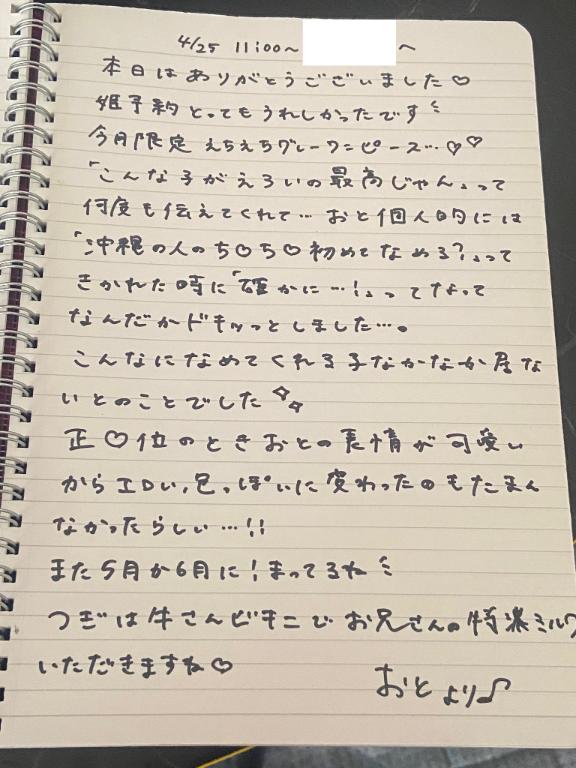 4/25 11:00〜 へ
本日はありがとうございました♡
姫予約とってもうれしかったです
今月限定 えちえちグレーワンピース…♡♡
「こんな子がえろいの最高じゃん」って
何度も伝えてくれて… おと個人的には
「沖縄の人のち♡ち♡初めてなめる?」って
きかれた時に「確かに…!」ってなって
なんだかドキッっとしました…。
こんなになめてくれる子なかなか居な
いとのことでした
正♡位のときおとの表情が可愛い
からエロい、色っぽいに変わったのもたまん
なかったらしい…!!
また5月か6月に!まってるね
つぎは牛さんビキニでお兄さんの特濃ミルク
いただきますね♡
おとより♪